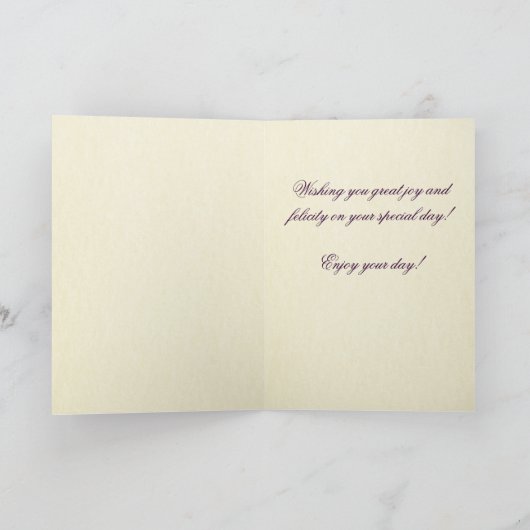 Wishing you great joy and
felicity on your special day!
Enjoy your day!